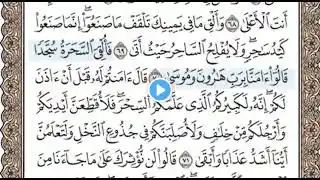 أَنتَ ٱلْأَعْلَىٰ ٦٨ وَأَلْقِ مَا فِى يَمِينِكَ تَلْقَفْ مَا صَنَعُوٓا۟ ۖ إِنَّمَا صَنَعُوا۟
كَيْدُ سَٰحِرٍ ۖ وَلَا يُفْلِحُ ٱلسَّاحِرُ حَيْثُ أَتَىٰ ٦٩ فَأُلْقِىَ ٱلسَّحَرَةُ سُجَّدًا
قَالُوٓا۟ ءَامَنَّا بِرَبِّ هَٰرُونَ وَمُوسَىٰ قَالَ ءَامَنتُمْ لَهُۥ قَبْلَ أَنْ ءَاذَنَ
لَكُمْ ۖ إِنَّهُۥ لَكَبِيرُكُمُ ٱلَّذِى عَلَّمَكُمُ ٱلسِّحْرَ ۖ فَلَأُقَطِّعَنَّ أَيْدِيَكُمْ
وَأَرْجُلَكُم مِّنْ خِلَٰفٍ وَلَأُصَلِّبَنَّكُمْ فِى جُذُوعِ ٱلنَّخْلِ وَلَتَعْلَمُنَّ
أَيُّنَآ أَشَدُّ عَذَابًا وَأَبْقَىٰ ٧١ قَالُوا۟ لَن نُّؤْثِرَكَ عَلَىٰ مَا جَآءَنَا مِنَ